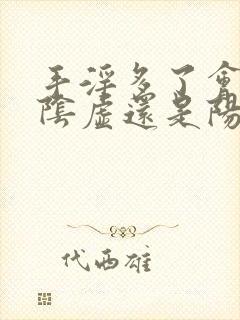 手淫多了會
陰虛還是陽
代西雄